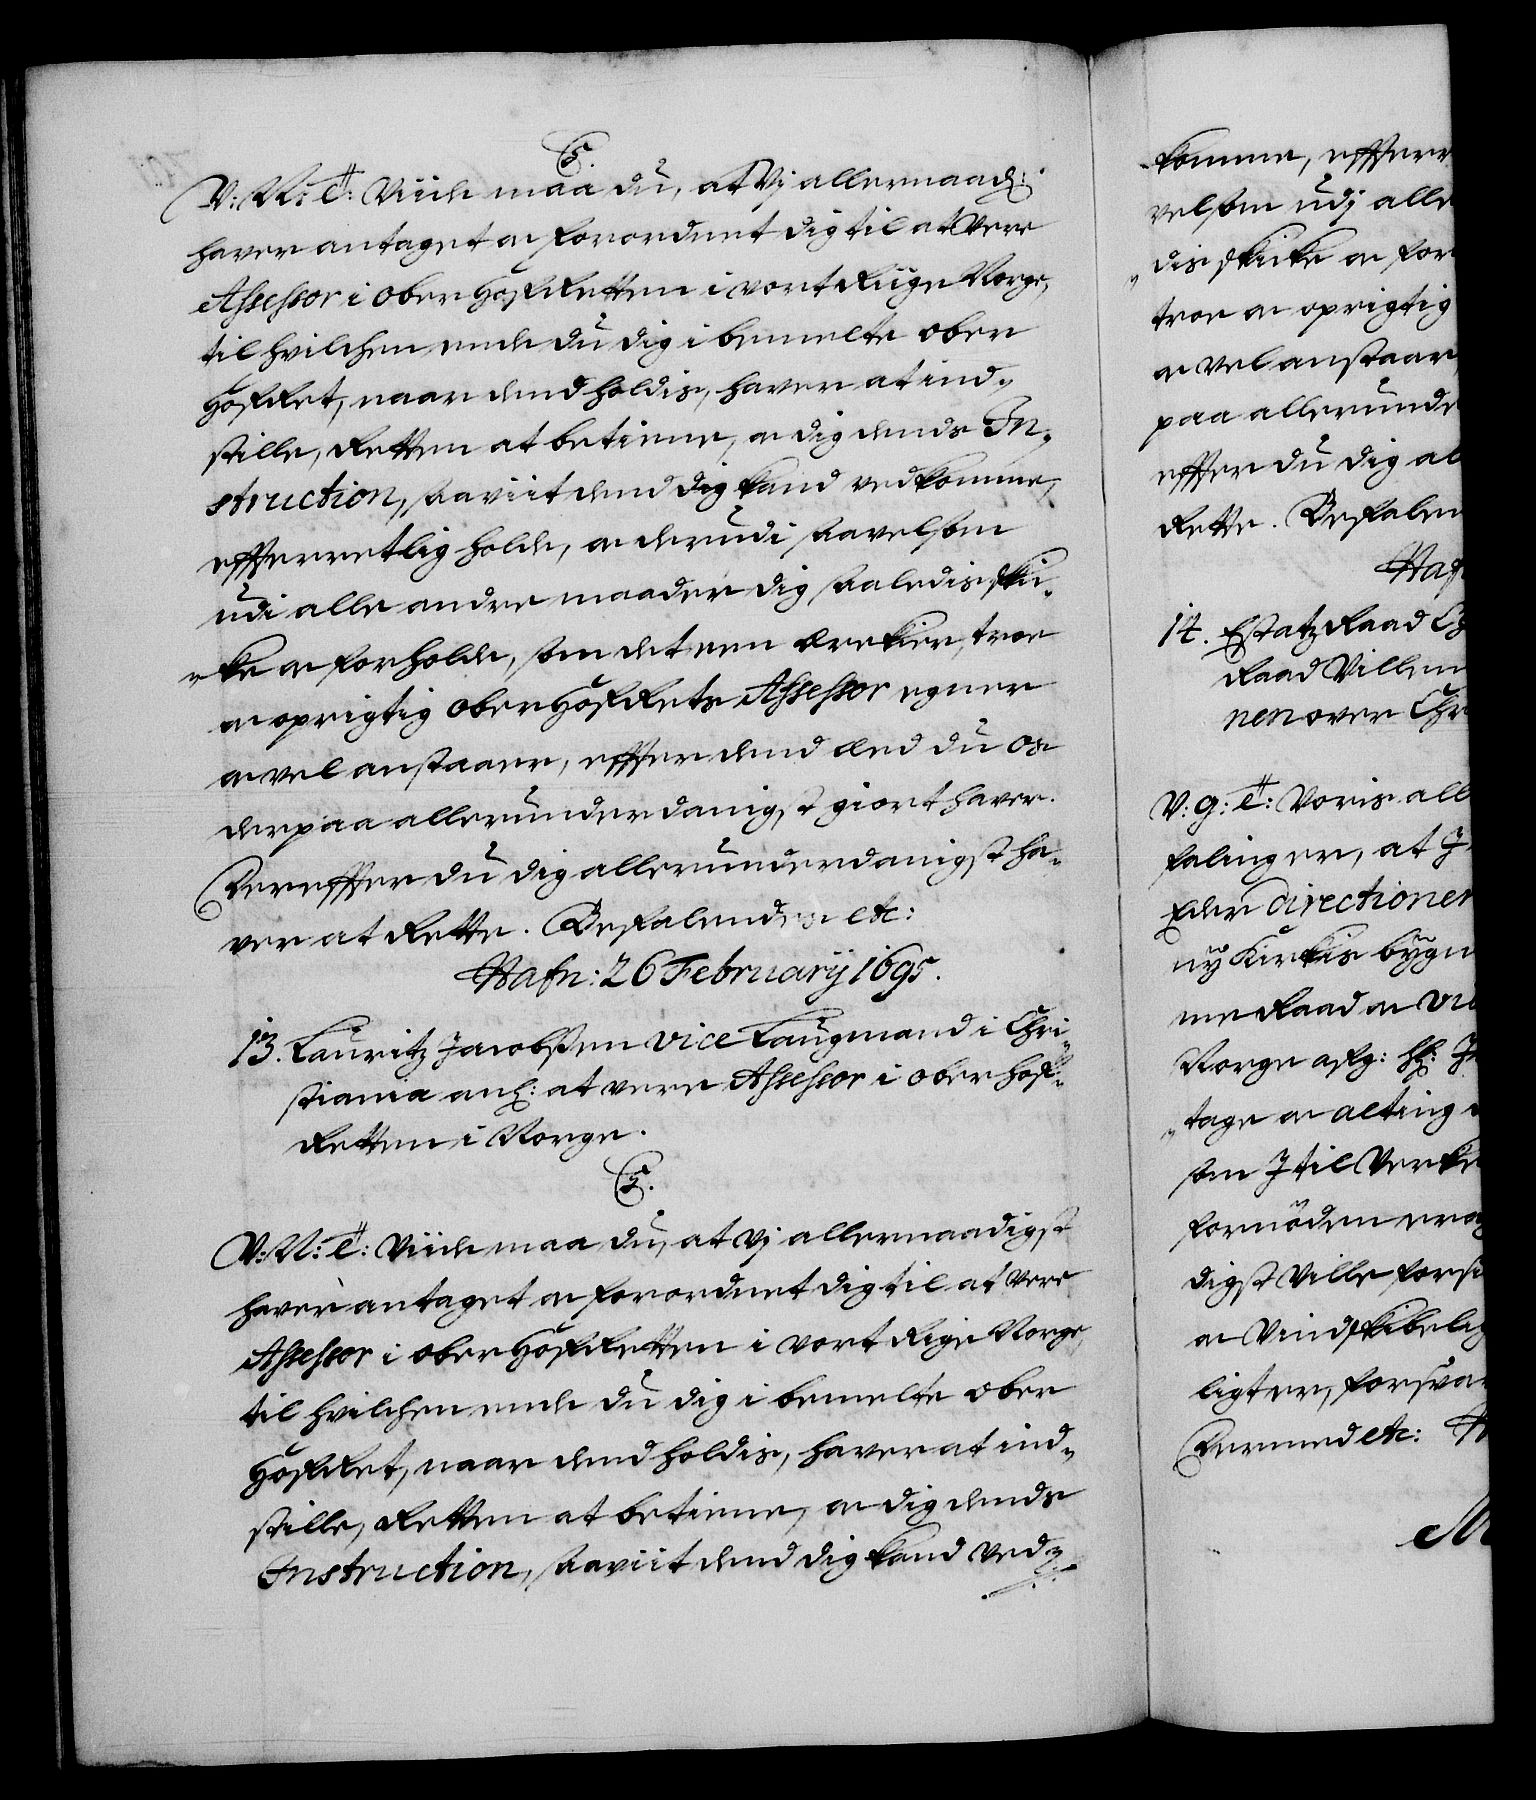 C5.
V: N: T: Viide maa du, at Vj allernaad:
haver antaget oc forordnet dig til at Vere
Assessor i Ober HofRetten i vort Riige Norge,
til hvilchen ende du dig i bemelte Ober
HofRet, naar dend holdis, haver at ind-
stille, Retten at betiene, oc dig dends In-
struction, saaviit dend dig kand vedkomme,
effterretlig holde, oc derudi saavelsom
udi alle andre maader dig saaledis ski-
cke oc forholde, som det een ærekier, troe
oc oprigtig Ober HofRets Assessor egner
oc vel anstaaer, effter dend Eed du os
derpaa allerunderdanigst giort haver.
Dereffter du dig allerunderdanigst ha-
ver at Rette. Befalendes etc:
Hafn: 26 February 1695.
13. Lauritz Jacobsen vice Laugmand i Chri-
stiania anl: at vere Assessor i Ober hof-
Retten i Norge.
C5.
V: N: T: Viide maa du, at Vj allernaadigst
haver antaget oc forordnet dig til at Vere
Assessor i Ober HofRetten i vort Rige Norge,
til hvilchen ende du dig i bemelte Ober
HofRet, naar dend holdis, haver at ind-
stille, Retten at betiene, oc dig dends
Instruction, saaviit dend dig kand Ved-
komme, effterr
velsom udj alle
dis skicke oc for
troe oc oprigtig
oc vel anstaar
paa allerunde
effter du dig al
Rette. Befalen
Haf
14. Estatz Raad Ch
Raad Villem
nen over Chr
V: g: T: Voris all
faling er, at J
Eder directionen
ny Kirkis bygn
me Raad oc Vic
Norge afg: Hl: J
tage oc alting
som J til Verke
fornøden erag
digst Ville forsi
oc Vindskibelig
ligt er, forsvar
Dermed etc: H
M